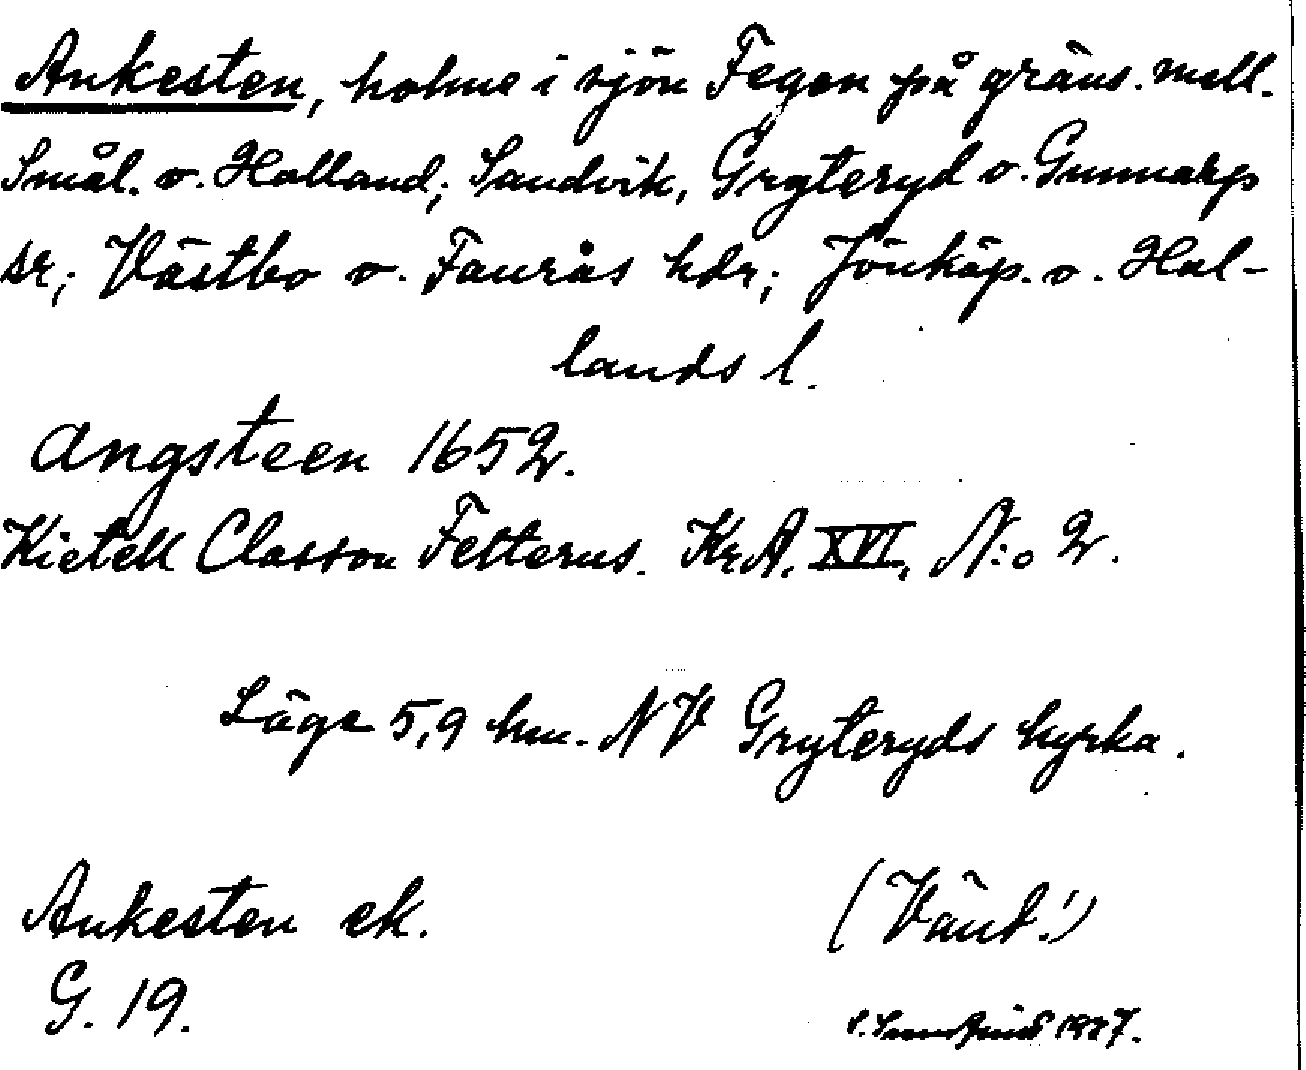 Ankesten, holme i sjön Fegen på gräns. mell.
Smål. o. Halland; Sandvik, Gryteryd o. Gunnarp
sr; Västbo o. Faurås hdr; Jönköp. o. Hal-
lands l.
Angsteen 1652.
Kietell Classon Felterus. KrA. XVI, N:o 2.
Läge 5,9 km. NV Gryteryds kyrka.
Ankesten ek.
(Vänd!)
G. 19.
1927.